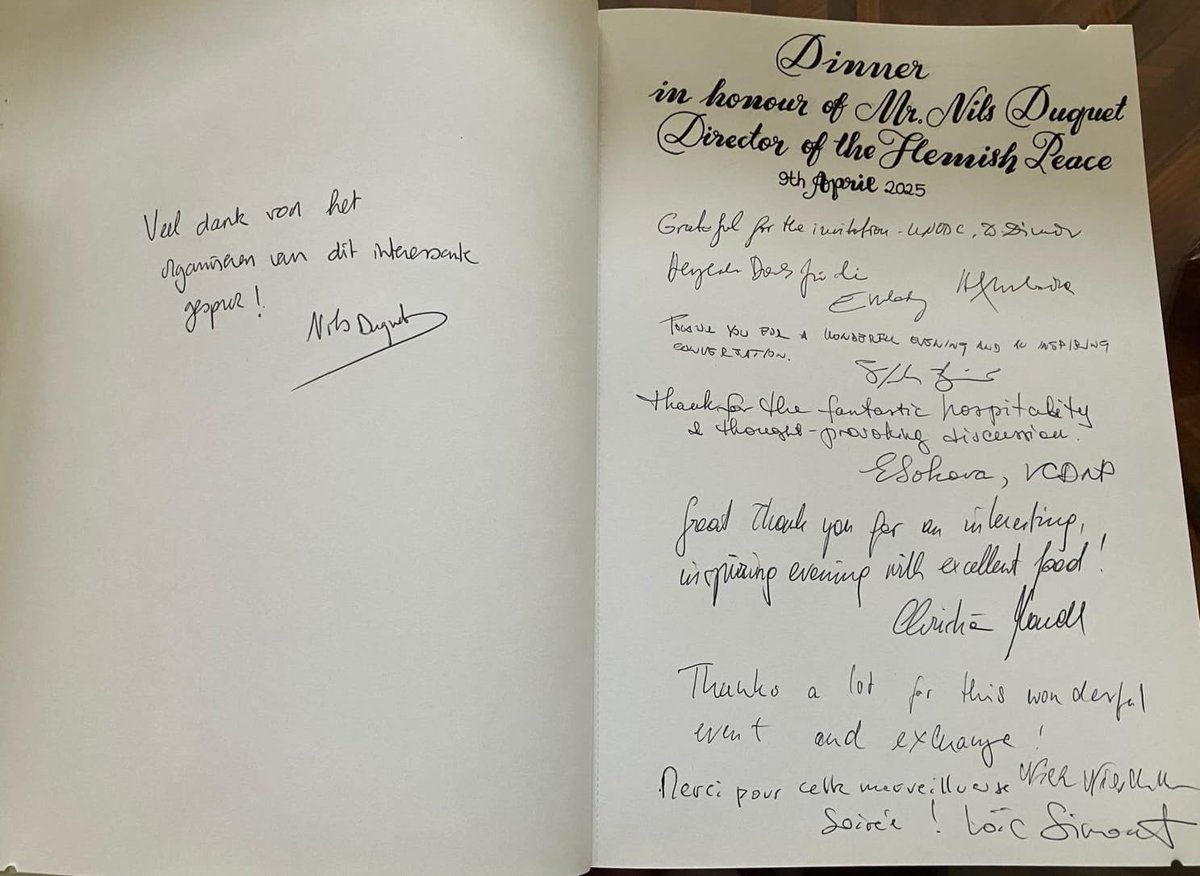 Veel dank voor het
organiseren van dit interessante
gesprek!
Nils Duquet
Dinner
in honour of Mr. Nils Duquet
Director of the Flemish Peace
9th April 2025
Grateful for the invitation - UNODC, S. Simon
für die
Thank you for a wonderful evening and an inspiring
conversation.
Thanks for the fantastic hospitality
& thought-provoking discussion.
ESokova, VCDNP
Great thank you for an interesting,
inspiring evening with excellent food!
Thanks a lot for this wonderful
event and exchange!
Merci pour cette merveilleuse
soirée! Loïc Simonet